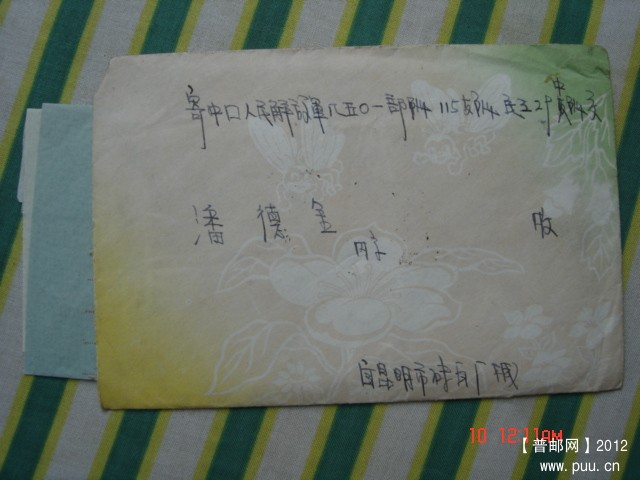 寄中口人民解放軍八五〇一部队115支队民五2中队交
潘德金
内詳
收
自昆明市砖瓦厂機
10 12:11AM
【普邮网】2012
www.puu.cn